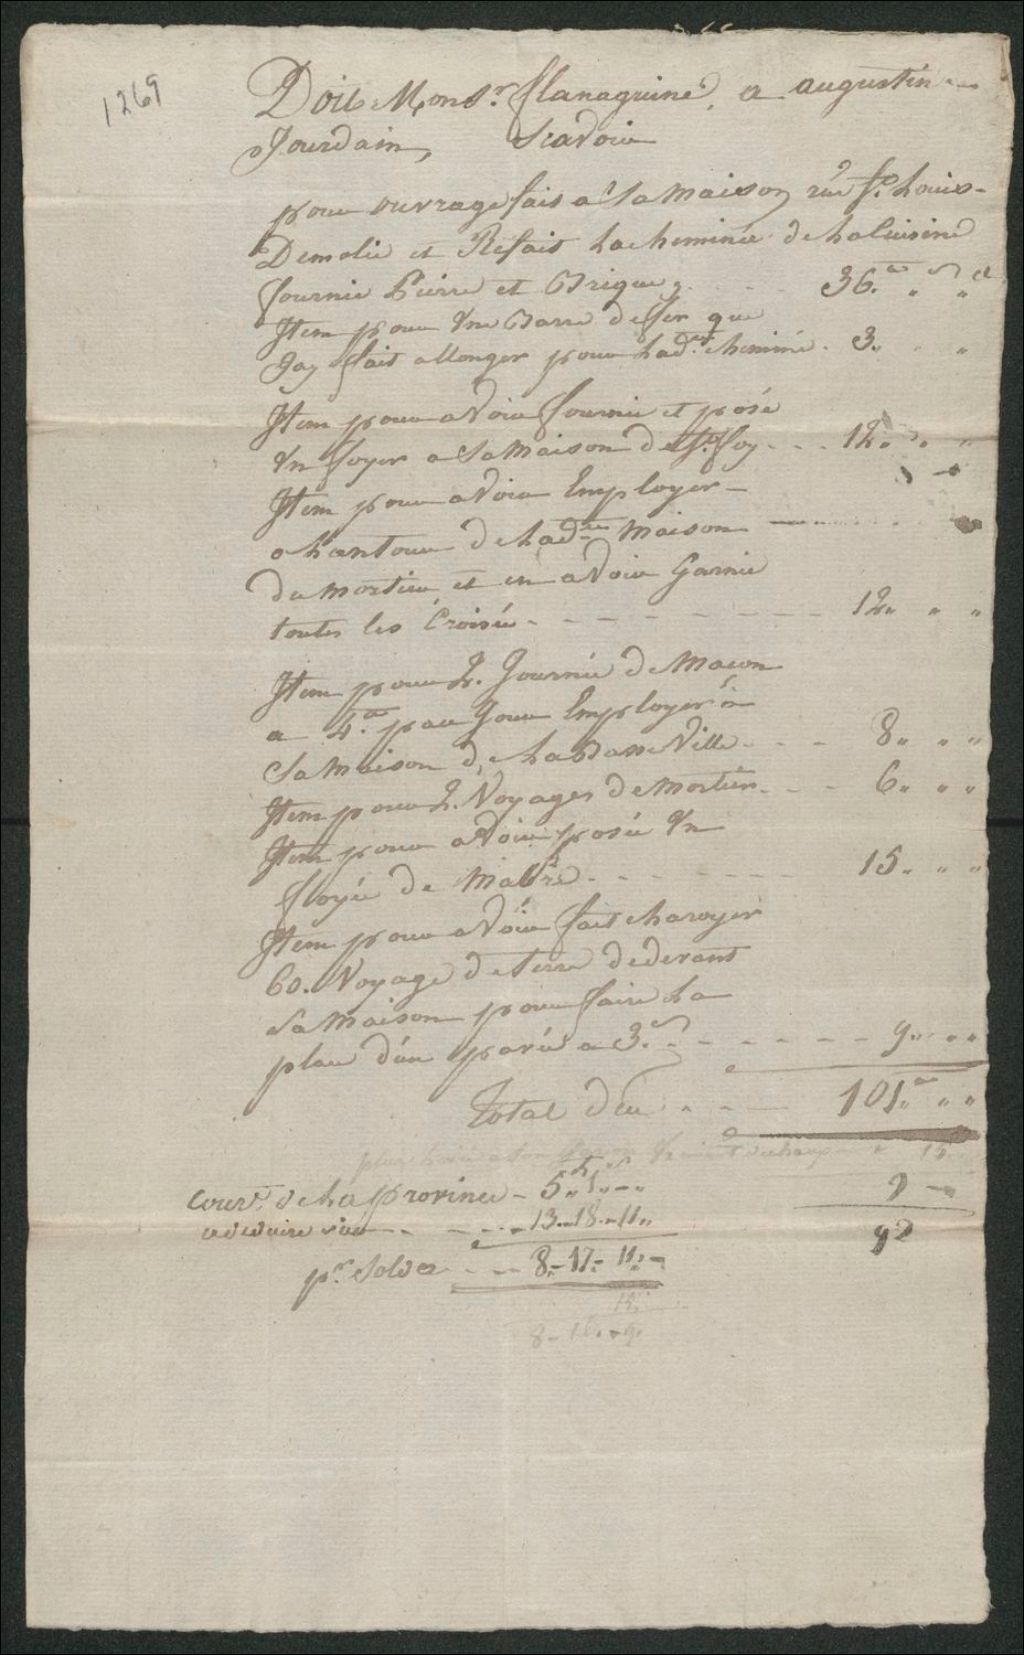 1269
Doit Monsr. flanaguine, a augustin
Jourdain, Scavoir
pour ouvrage fais a sa maison rue St. Louis
Demolir et Refait La cheminée de La Cuisine
fournie Pierre et Brique, . . . 36.tt „ s „ d
Item pour Une Barre de fer que
Jay fait allonger pour Ladte. cheminé . 3. „ „
Item pour avoir fournie et posé
Un foyer a Sa Maison de St. foy . . . 12. „ „
Item pour avoir Employer
a Lentour de Ladte. Maison
du mortier et en avoir Garnie
toutes les Croisée . . . 12. „ „
Item pour 2. Journée de Macon
a 4.tt par Jour Employer a
Sa Maison de La Basse Ville . . . 8. „ „
Item pour 2. Voyages de mortier . . . 6. „ „
Item pour avoir posée Un
floyée de Mabre . . . 15. „ „
Item pour avoir fait charoyer
60. Voyage de terre de devant
Sa Maison pour faire La
place d'un pavé a 3.s . . . 9. „ „
Total deu . . . 101.tt „ „
15
cour. de La province - 5.. 1.. -  9 -
13.. 18.. 11..  92
pr. Solde - - 8.- 17.- 11. -